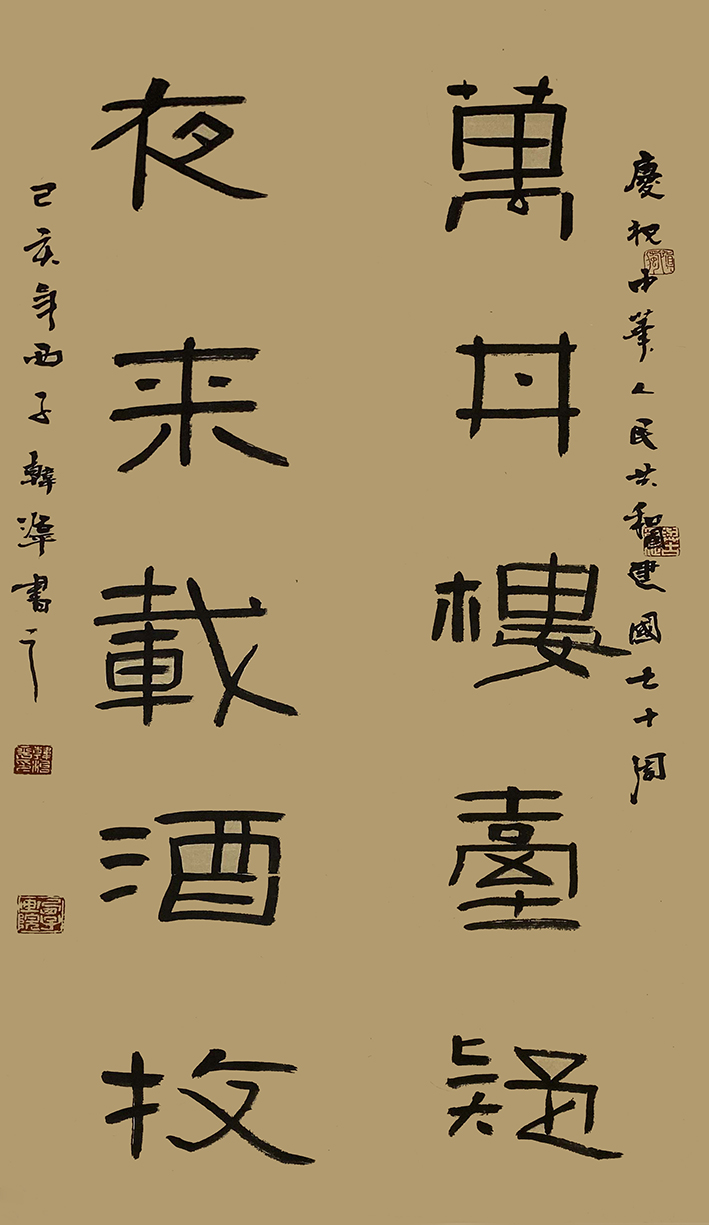 慶祝中華人民共和國建國七十周
萬丼樓臺疑
夜来載酒
己亥年西子韓書之